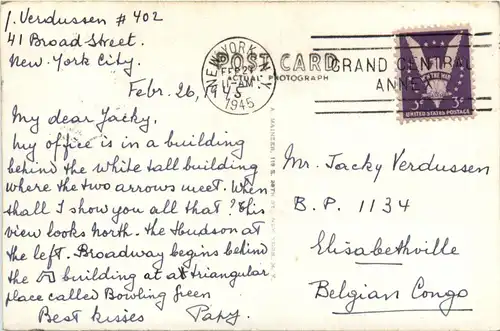 J. Verdussen # 402
41 Broad Street.
New York City.
Febr. 26, 1945
My dear Jacky.
my office is in a building
behind the white tall building
where the two arrows meet. When
shall I show you all that? This
view looks North. The Hudson at
the left. Broadway begins behind
the building at a triangular
place called Bowling Green
Best kisses Papy.
POST CARD
"ACTUAL" PHOTOGRAPH
NEW YORK, N.Y.
FEB 27
11-AM
1945
GRAND CENTRAL
ANNEX
WIN THE WAR
3¢ 3¢
UNITED STATES POSTAGE
Mr. Jacky Verdussen
B. P. 1134
Elisabethville
Belgian Congo